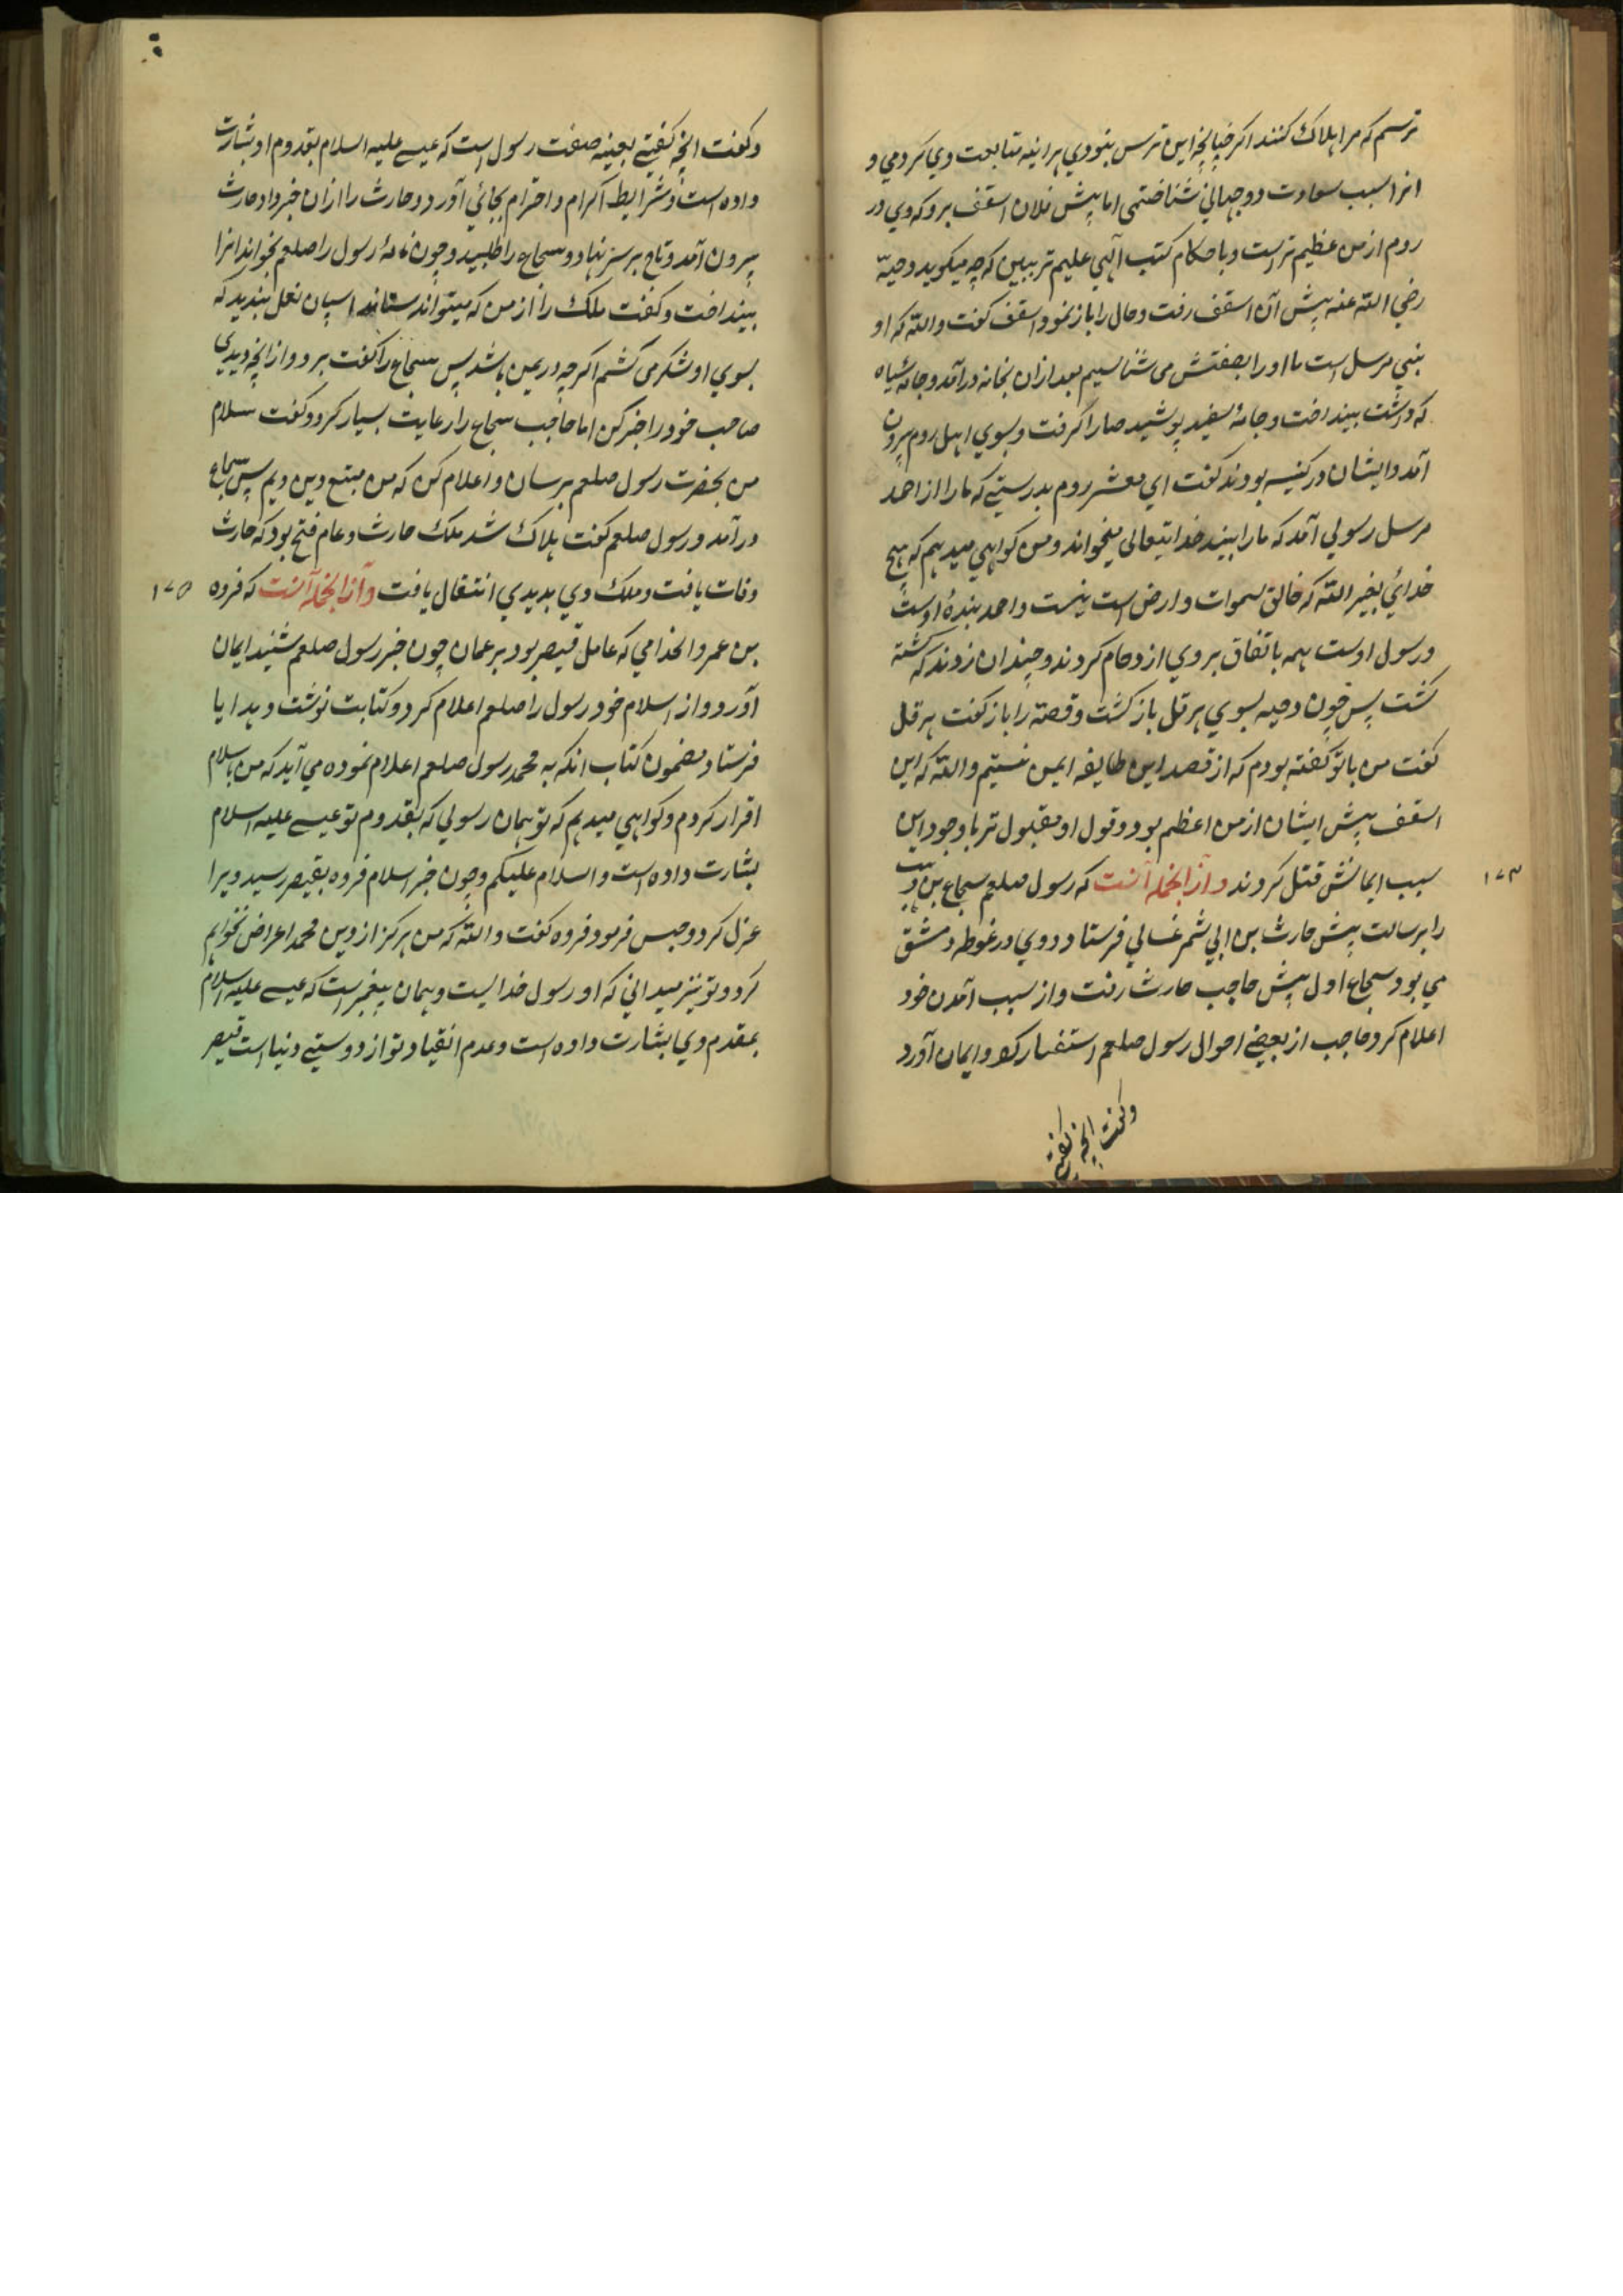 ترسم که مرا هلاک کنند اکر چنانچه این ترس نبودي هراینه متابعت وي کردمي و
انرا سبب سعادت دوجهاني شناختمى اما پیش فلان اسقف برو که وي در
روم از من عظیم تر است و باحکام کتب الهي علیم تر ببین که چه میکوید دحیه
رضي الله عنه پیش آن اسقف رفت و حال را باز نمود اسقف کفت والله که او
نبي مرسل است ما اورا بصفتش مى شناسیم بعد ازان بخانه درآمد و جامۀ سیاه
که داشت بینداخت و جامۀ سفید پوشید عصا را کرفت و بسوي اهل روم بیرون
آمد و ایشان در کنیسه بودند کفت اي معشر روم بدرستي که مارا از احمد
مرسل رسولي آمد که مارا بیند خدایتعالى میخواند و من کواهي میدهم که هیچ
خدائي بغیر الله که خالق سموات و ارض است نیست و احمد بندۀ اوست
و رسول اوست همه باتفاق بر وي ازدحام کردند و چندان زدند که کشته
کشت پس چون دحیه بسوي هرقل باز کشت و قصته را باز کفت هرقل
کفت من با تو کفته بودم که از قصد این طایفه ایمن نیستیم والله که این
اسقف پیش ایشان از من اعظم بود و قول او مقبول تر با وجود این
سبب ایمانش قتل کردند و از انجمله آنست که رسول صلعم سجاع بن وهب ۱۷۳
را برسالت پیش حارث بن ابي شمر غسالي فرستاد و وي در غوطه دمشق
مي بود سجاع اول پیش حاجب حارث رفت و از سبب آمدن خود
اعلام کرد حاجب از بعضے احوال رسول صلعم استفسار کرد و ایمان آورد
وکفت انچه کفتے
وکفت انچه کفتے بعینه صفت رسول است که عیسے علیه السلام بقدوم او بشارت
داده است و شرایط اکرام و احترام بجائي آورد و حارث را ازان خبر داد حارث
بیرون آمد و تاج بر سر نهاد و سجاع را طلبید و چون نامۀ رسول را صلعم بخواند انرا
بینداخت و کفت ملک را از من که میتواند ستاند اسپان نعل بندید که
بسوي او لشکر مى کشم اکر چه در یمن باشد پس سجاع را کفت برو و از انچه دیدي
صاحب خود را خبر کن اما حاجب سجاع را رعایت بسیار کرد و کفت سلام
من بحضرت رسول صلعم برسان و اعلام کن که من متبع دین ویم پس سجاع
در آمد و رسول صلعم کفت هلاک شد ملک حارث و عام فتح بود که حارث
وفات یافت و ملک وي بدیدي انتقال یافت و از انجمله آنست که فروه ۱۷۵
بن عمرو الخذامي که عامل قیصر بود بر عمان چون خبر رسول صلعم شنید ایمان
آورد و از اسلام خود رسول را صلعم اعلام کرد و کتابت نوشت و هدایا
فرستاد مضمون کتاب انکه به محمد رسول صلعم اعلام نموده مي آید که من باسلام
اقرار کردم و کواهي میدهم که تو همان رسولي که بقدوم تو عیسے علیه السلام
بشارت داده است والسلام علیکم و چون خبر اسلام فروه بقیصر رسید ویرا
عزل کرد و حبس فرمود فروه کفت والله که من هرکز از دین محمد اعراض نخواهم
کرد و تو نیز میداني که او رسول خدا لیست و همان پیغمبر است که عیسے علیه السلام
بمقدم وي بشارت داده است و عدم انقیاد تو از دوستے دنیا است قیصر